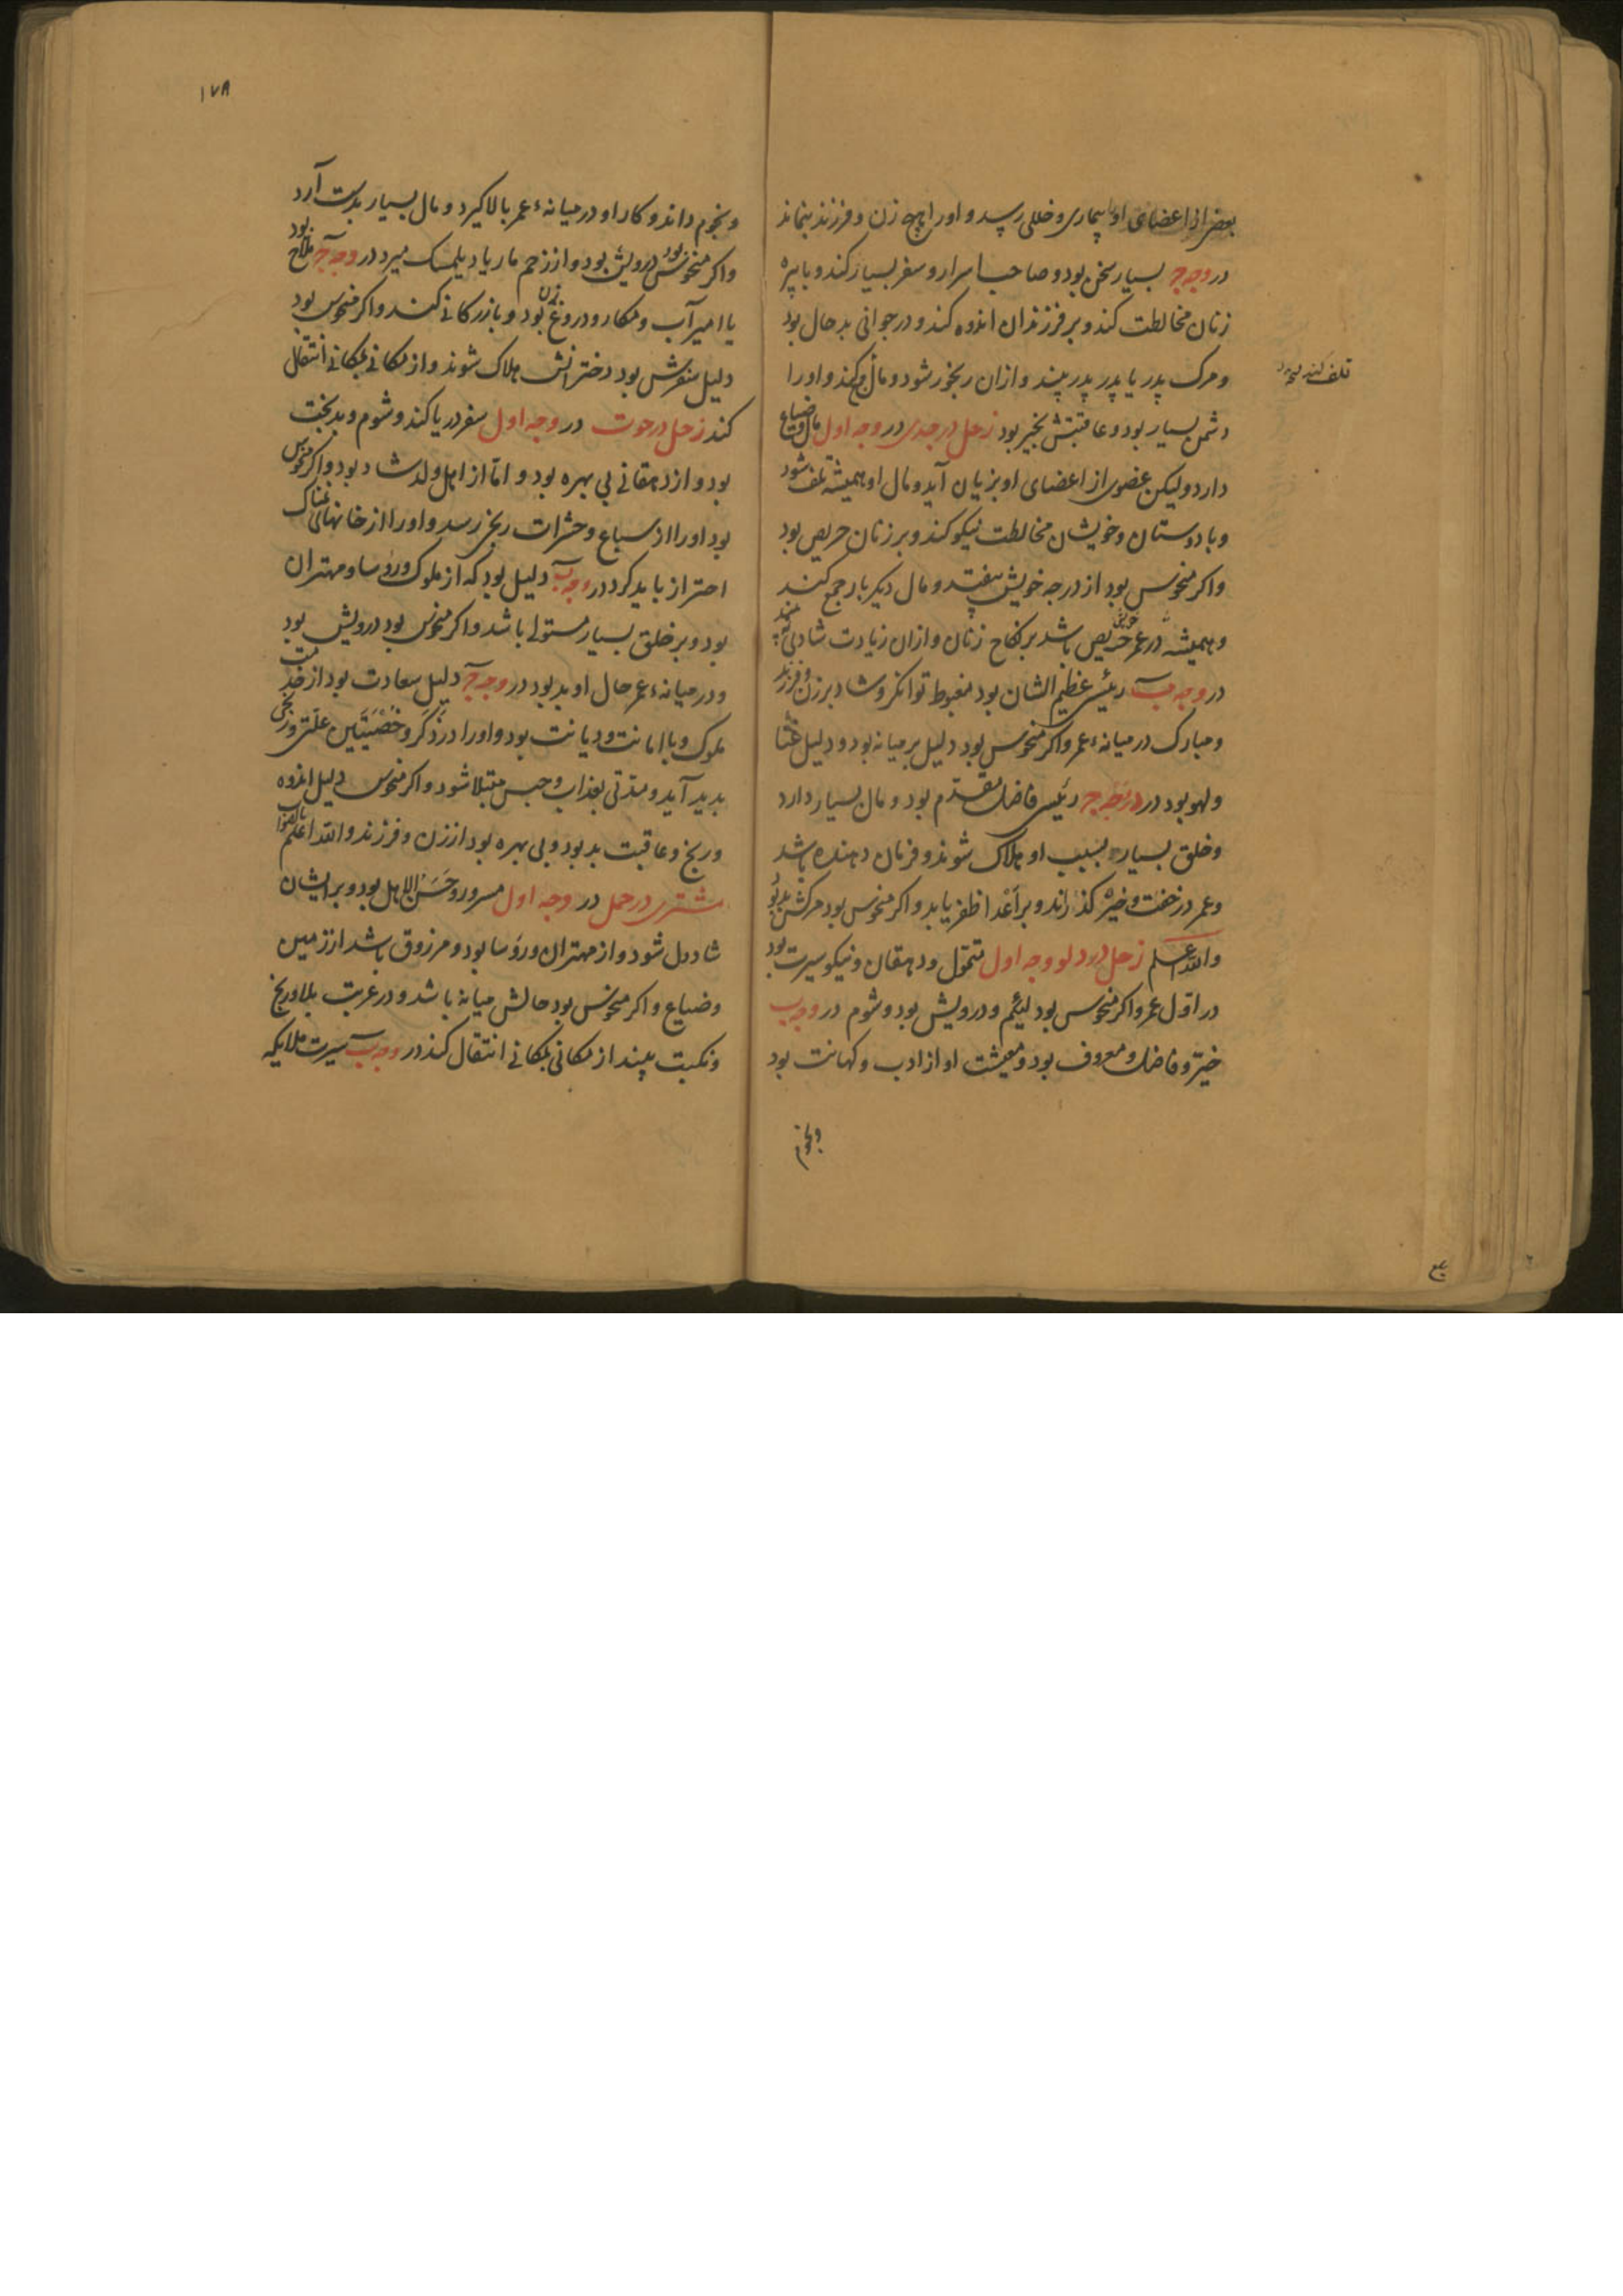 بعضی از اعضای او بیماری و خللی رسد و او را هیچ زن و فرزند نماند
در وجه ج بسیار سخن بود و صاحب اسرار و سفر بسیار کند و با پیره
زنان مخالطت کند و بر فرزندان اندوه کند و در جوانی بدحال بود
و مرک پدر یا پدر پدر بیند و ازان رنجور شود و مال کند و او را
تلف کند
دشمن بسیار بود و عاقبتش بخیر بود زحل در جدی در وجه اول مال و ضیاع
دارد ولیکن عضوی از اعضای او بزیان آید و مال او همیشه تلف شود
و با دوستان و خویشان مخالطت نیکو کند و بر زنان حریص بود
و اکر منحوس بود از درجه خویش بیفتد و مال دیکر بار جمع کند
و همیشه در عمر حریص باشد بر نکاح زنان و ازان زیادت شادی بیند
در وجه ب رئیس عظیم الشان بود مغبوط توانکر و شاد بر زن و فرزند
و مبارک در میانهء عمر و اکر منحوس بود دلیل بر میانه بود و دلیل غنا
و لهو بود در وجه ج رئیس فاضل مقدم بود و مال بسیار دارد
و خلق بسیار بسبب او هلاک شوند و فرمان دهنده باشد
و عمر در خفت و خیره کذراند و بر اعدا ظفر یابد و اکر منحوس بود مرکش بد بود
والله اعلم زحل در دلو وجه اول متمول و دهقان و نیکو سیرت بود
در اول عمر و اکر منحوس بود لئیم و درویش بود و شوم در وجه ب
خیر و فاضل و معروف بود و معیشت او از ادب و کهانت بود
و نجوم
۱۷۸
و نجوم داند و کار او در میانهء عمر بالا کیرد و مال بسیار بدست آرد
و اکر منحوس بود درویش بود و از زخم مار یا دیلمک میرد در وجه ج ملاح بود
یا امیر آب و مکار و دروغ زن بود و بازرکانی کند و اکر منحوس بود
دلیل سفرش بود دخترانش هلاک شوند و از مکانی بمکانی انتقال
کند زحل در حوت در وجه اول سفر دریا کند و شوم و بدبخت
بود و از دهقانی بی بهره بود و اما از اهل و ولد شاد بود و اکر منحوس
بود او را از سباع و حشرات رنج رسد و او را از خانهای نمناک
احتراز باید کرد در وجه ب دلیل بود که از ملوک و رؤسا و مهتران
بود و بر خلق بسیار مستولی باشد و اکر منحوس بود درویش بود
و در میانهء عمر حال او بد بود در وجه ج دلیل سعادت بود از خدمت
ملوک و با امانت و دیانت بود و او را در ذکر و خصیتین علتی و رنجی
بدید آید و مدتی بعذاب و حبس مبتلا شود و اکر منحوس دلیل اندوه
و رنج و عاقبت بد بود و بی بهره بود از زن و فرزند والله اعلم بالصواب
مشتری در حمل در وجه اول مسرور و حسن الاهل بود و بر ایشان
شاددل شود و از مهتران و رؤسا بود و مرزوق باشد از زمین
و ضیاع و اکر منحوس بود حالش میانه باشد و در غربت بلا و رنج
و نکبت بیند از مکانی بمکانی انتقال کند در وجه ب سیرت ملایکه